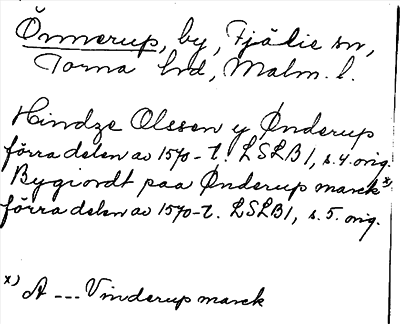 Önnerup, by, Fjälie sn,
Torna hd, Malm. l.
Hindze Olssen y Ønderup
förra delen av 1570-t. LSLB1, s. 4. orig.
Bygiordt paa Ønderup marck x)
förra delen av 1570-t. LSLB1, s. 5. orig.
x) A --- Vinderup marck